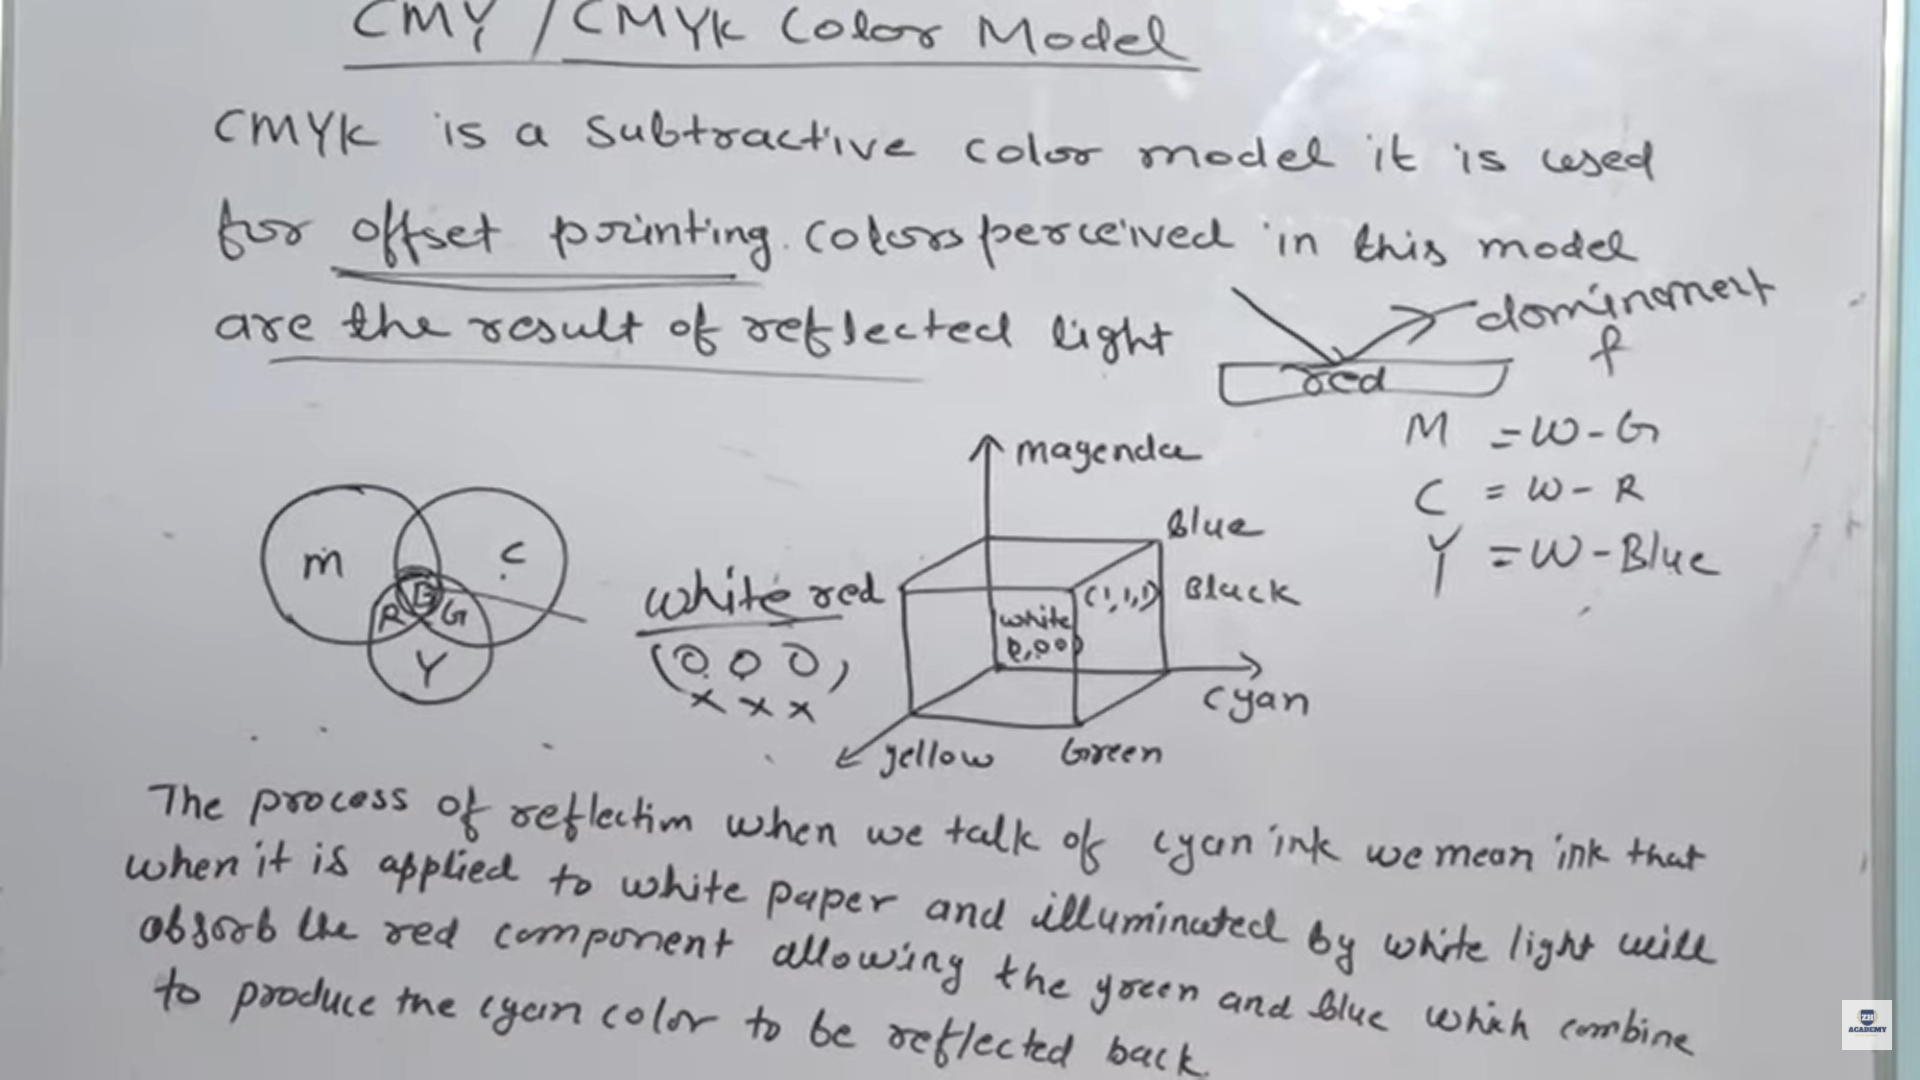 CMY / CMYK Color Model
CMYK is a subtractive color model it is used
for offset printing. Colors perceived in this model
are the result of reflected light
dominement
f
red
M = W - G
C = W - R
Y = W - Blue
magenda
Blue
(1,1,1) Black
white
0,00
cyan
yellow
Green
red
white
(0 0 0)
x x x
m
C
B
R
G
Y
The process of reflection when we talk of cyan ink we mean ink that
when it is applied to white paper and illuminated by white light will
absorb the red component allowing the green and blue which combine
to produce the cyan color to be reflected back.
ZH
ACADEMY